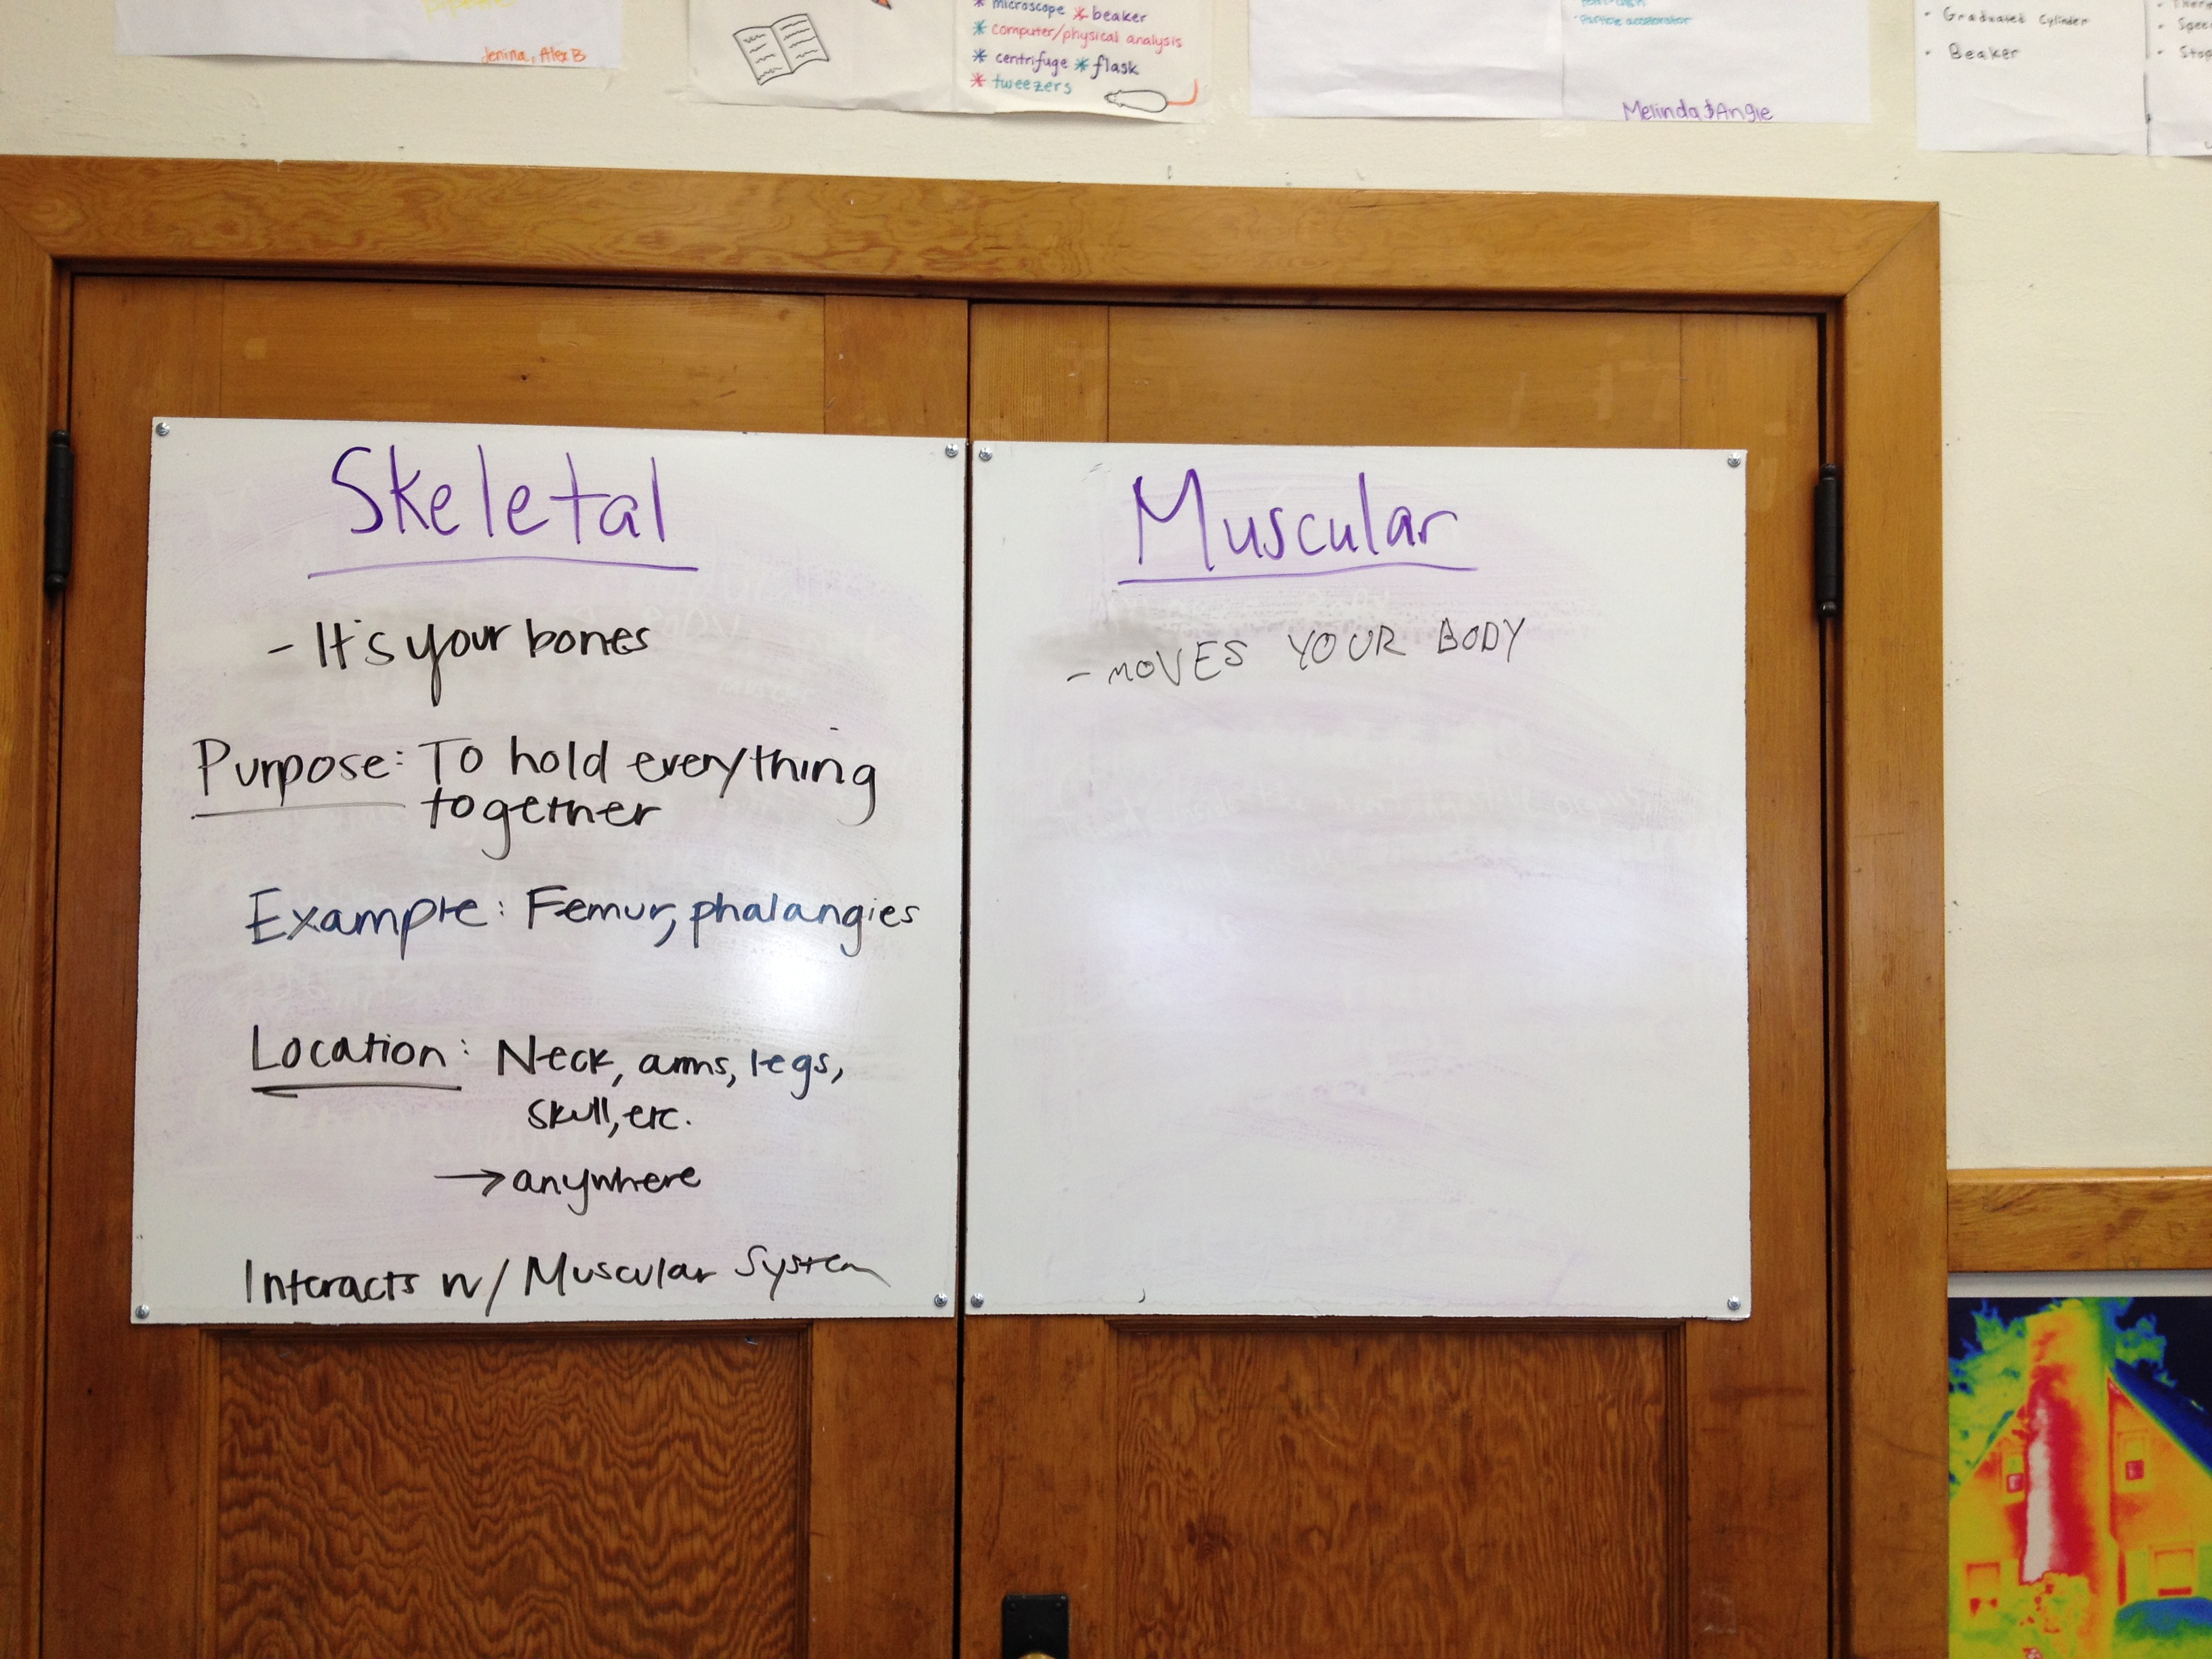 Jenina, Alex B
* microscope * beaker
* computer/physical analysis
* centrifuge * flask
* tweezers
Particle accelerator
Melinda & Angie
• Graduated Cylinder
• Beaker
Skeletal
- It's your bones
Purpose: To hold everything
together
Example: Femur, phalangies
Location: Neck, arms, legs,
skull, etc.
→ anywhere
Interacts w/ Muscular System
Muscular
- MOVES YOUR BODY